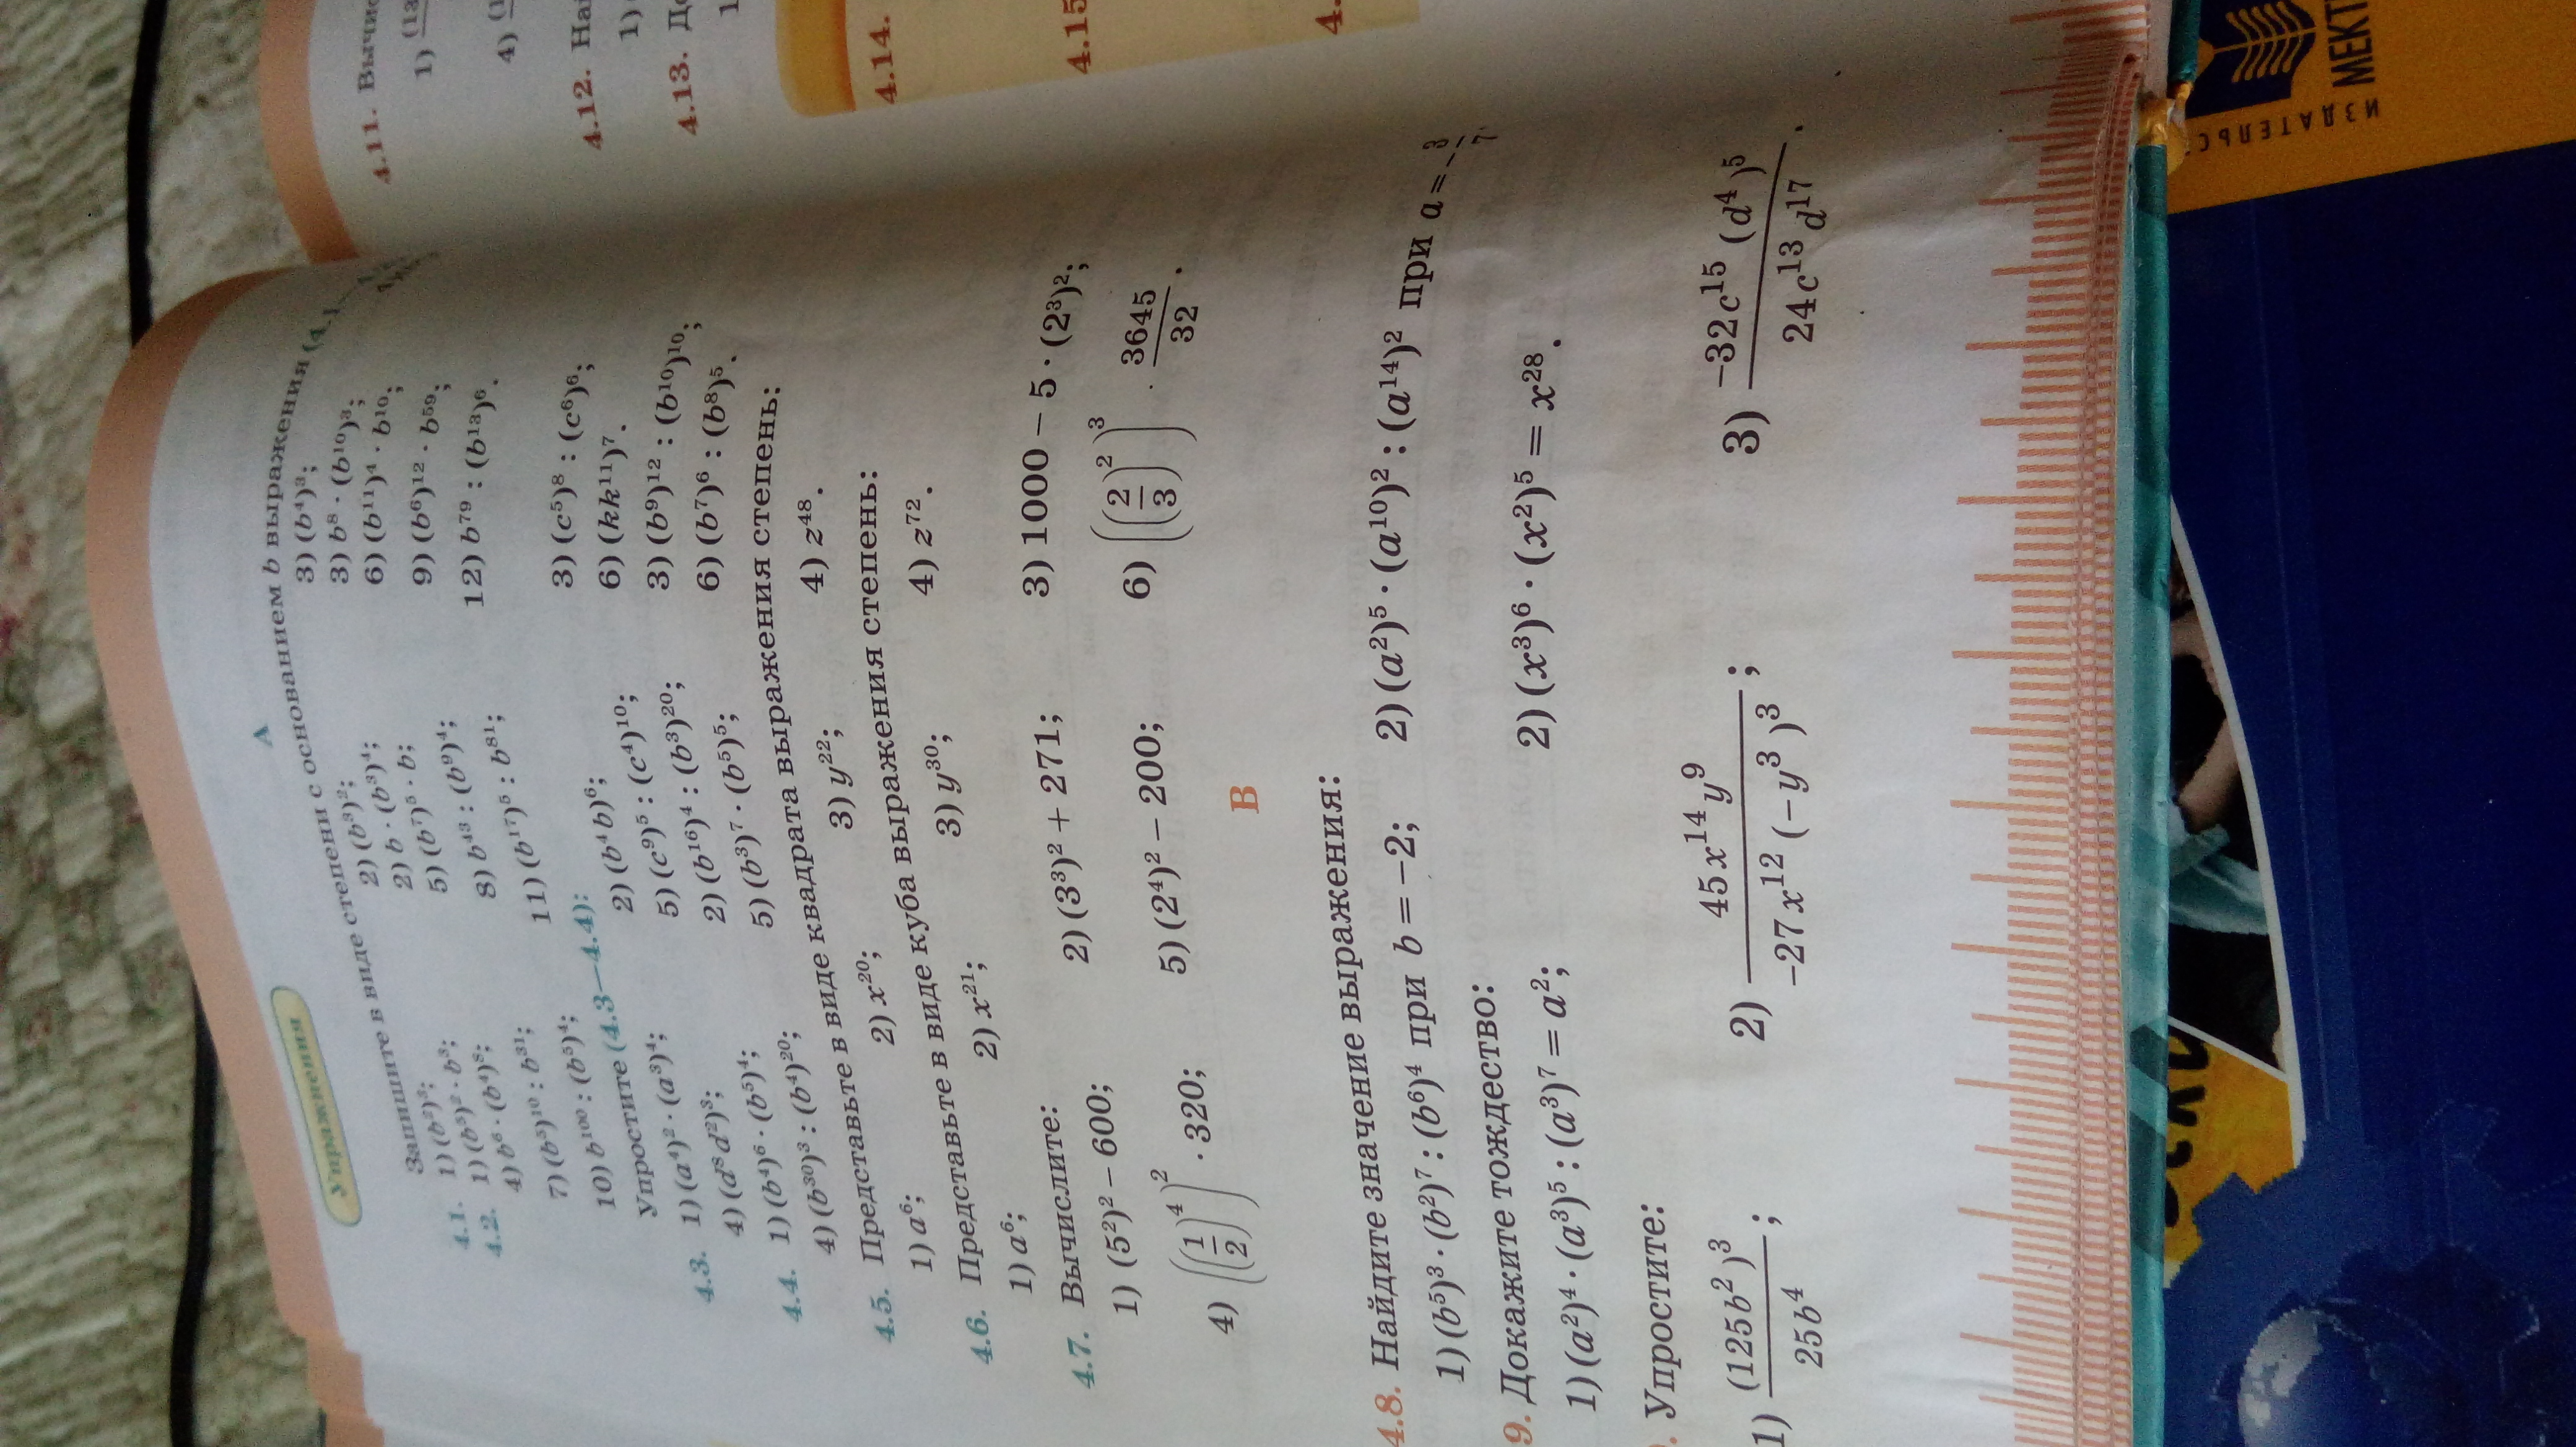 Упражнения
А
Запишите в виде степени с основанием b выражения (4.1—
4.1. 1) (b²)³; 2) (b³)²; 3) (b⁴)³;
4.2. 1) (b³)² · b³; 2) (b³)⁴; 3) b⁸ · (b¹⁰)³;
4) b⁶ · (b⁴)⁸; 2) b · b; 6) (b¹¹)⁴ · b¹⁰;
5) (b⁷)⁵ · (b⁹)⁴;
7) (b⁵)¹⁰ : b³¹; 8) b⁴³ : (b⁹)⁴; 9) (b⁶)¹² · b⁵⁹;
10) b¹⁰⁰ : (b⁵)⁴; 11) (b¹⁷)⁵ : b⁸¹; 12) b⁷⁹ : (b¹³)⁶.
Упростите (4.3—4.4):
4.3. 1) (a⁴)² · (a³)⁴; 2) (b⁴b)⁶; 3) (c⁵)⁸ : (c⁶)⁶;
4) (d⁸d²)⁸; 5) (c⁹)⁵ : (c⁴)¹⁰; 6) (kk¹¹)⁷.
4.4. 1) (b⁴)⁶ · (b⁵)⁴; 2) (b¹⁶)⁴ : (b³)²⁰; 3) (b⁹)¹² : (b¹⁰)¹⁰;
4) (b³⁰)³ : (b⁴)²⁰; 5) (b³)⁷ · (b⁵)⁵; 6) (b⁷)⁶ : (b⁸)⁵.
4.5. Представьте в виде квадрата выражения степень:
1) a⁶; 2) x²⁰; 3) y²²; 4) z⁴⁸.
4.6. Представьте в виде куба выражения степень:
1) a⁶; 2) x²¹; 3) y³⁰; 4) z⁷².
4.7. Вычислите:
1) (5²)² – 600; 2) (3³)² + 271; 3) 1000 – 5 · (2³)²;
4) ((1/2)⁴)² · 320; 5) (2⁴)² – 200; 6) ((2/3)²)³ · 3645/32.
В
4.8. Найдите значение выражения:
1) (b⁵)³ · (b²)⁷ : (b⁶)⁴ при b = –2; 2) (a²)⁵ · (a¹⁰)² : (a¹⁴)² при a = –3/7.
9. Докажите тождество:
1) (a²)⁴ · (a³)⁵ : (a³)⁷ = a²; 2) (x³)⁶ · (x²)⁵ = x²⁸.
. Упростите:
1) (125b²)³/25b⁴; 2) 45x¹⁴y⁹/–27x¹²(–y³)³; 3) –32c¹⁵(d⁴)⁵/24c¹³d¹⁷.
4.11. Вычис
1) (1
4) (1
4.12. На
1)
4.13. Д
1
4.14.
4.15
4.
ИЗДАТЕЛЬС
МЕКТ